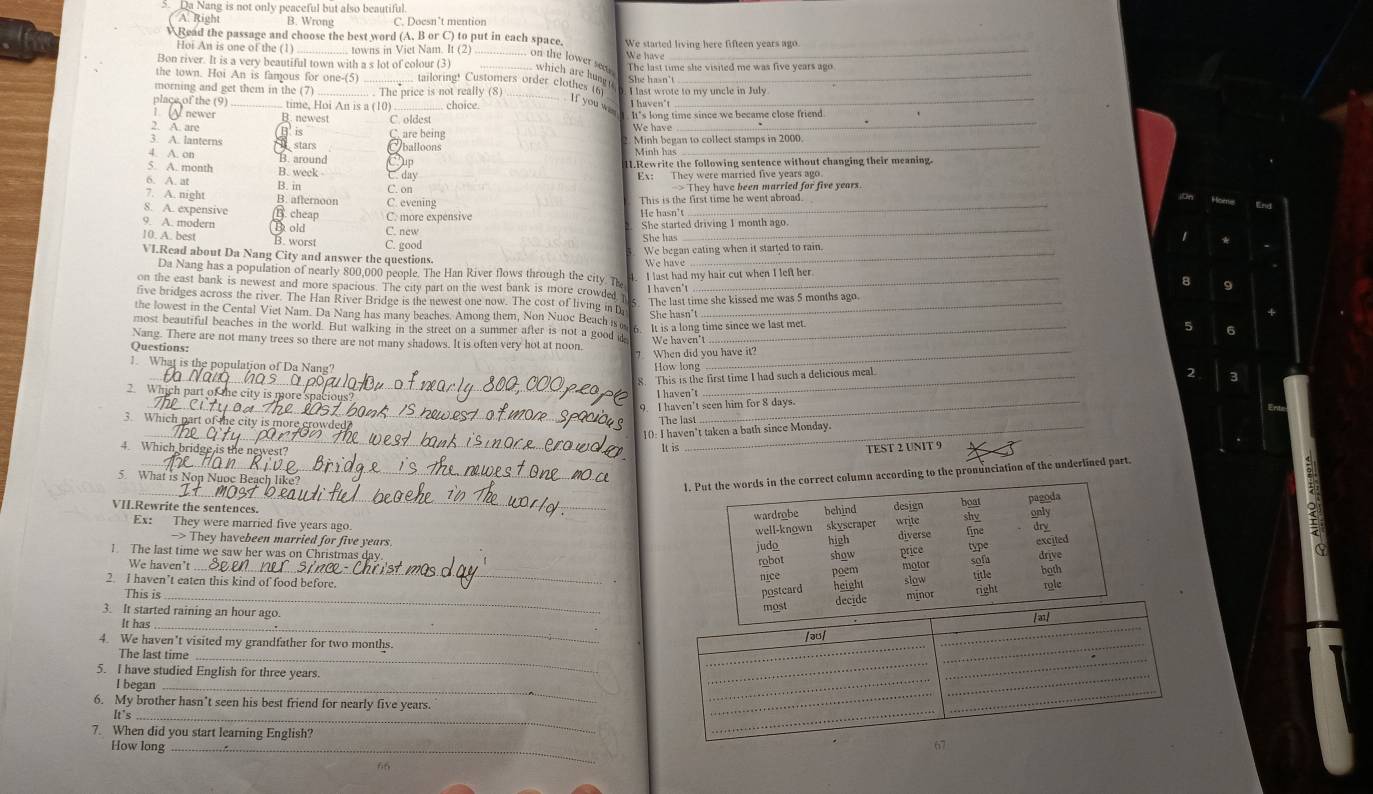 5. Da Nang is not only peaceful but also beautiful.
A. Right B. Wrong C. Doesn't mention
V.Read the passage and choose the best word (A, B or C) to put in each space.
Hoi An is one of the (1) ............ towns in Viet Nam. It (2) ............ on the lower
Bon river. It is a very beautiful town with a s lot of colour (3) ............ which are hung
the town. Hoi An is famous for one-(5) ............ tailoring! Customers order clothes (6)
morning and get them in the (7) ............ . The price is not really (8) ............ . If you
place of the (9) ............ time, Hoi An is a (10) ............ choice.
1. A. newer B. newest C. oldest
2. A. are B. is C. are being
3. A. lanterns B. stars C. balloons
4. A. on B. around C. up
5. A. month B. week C. day
6. A. at B. in C. on
7. A. night B. afternoon C. evening
8. A. expensive B. cheap C. more expensive
9. A. modern B. old C. new
10. A. best B. worst C. good
VI.Read about Da Nang City and answer the questions.
Da Nang has a population of nearly 800,000 people. The Han River flows through the city. The
on the east bank is newest and more spacious. The city part on the west bank is more crowded.
five bridges across the river. The Han River Bridge is the newest one now. The cost of living in Da
the lowest in the Cental Viet Nam. Da Nang has many beaches. Among them, Non Nuoc Beach is
most beautiful beaches in the world. But walking in the street on a summer after is not a good
Nang. There are not many trees so there are not many shadows. It is often very hot at noon.
Questions:
1. What is the population of Da Nang?
Da Nang has a population of nearly 800,000 people
2. Which part of the city is more spacious?
The city on the east bank is newest of more spacious
3. Which part of the city is more crowded?
The city part on the west bank is more crowded.
4. Which bridge is the newest?
The Han Rive Bridge is the newest one now
5. What is Non Nuoc Beach like?
It most beautiful beache in the world.
VII.Rewrite the sentences.
Ex: They were married five years ago.
-> They havebeen married for five years.
1. The last time we saw her was on Christmas day.
We haven't seen her since christmas day
2. I haven't eaten this kind of food before.
This is
3. It started raining an hour ago.
It has
4. We haven't visited my grandfather for two months.
The last time
5. I have studied English for three years.
I began
6. My brother hasn't seen his best friend for nearly five years.
It's
7. When did you start learning English?
How long
66
We started living here fifteen years ago.
We have
The last time she visited me was five years ago.
She hasn't
I last wrote to my uncle in July
I haven't
It's long time since we became close friend.
We have
Minh began to collect stamps in 2000.
Minh has
II.Rewrite the following sentence without changing their meaning.
Ex: They were married five years ago.
-> They have been married for five years.
This is the first time he went abroad.
He hasn't
She started driving 1 month ago.
She has
We began eating when it started to rain.
We have
4. I last had my hair cut when I left her.
I haven't
5. The last time she kissed me was 5 months ago.
She hasn't
6. It is a long time since we last met.
We haven't
7. When did you have it?
How long
8. This is the first time I had such a delicious meal.
I haven't
9. I haven't seen him for 8 days.
The last
10. I haven't taken a bath since Monday.
It is
TEST 2 UNIT 9
1. Put the words in the correct column according to the pronunciation of the underlined part.
wardrobe behind design boat pagoda
well-known skyscraper write shy only
judo high diverse fine dry
robot show price type excited
nice poem motor sofa drive
postcard height slow title both
most decide minor right role
/əʊ/ /aɪ/
67
Home End
8 9
5 6
2 3
+
Ente
AIHAO